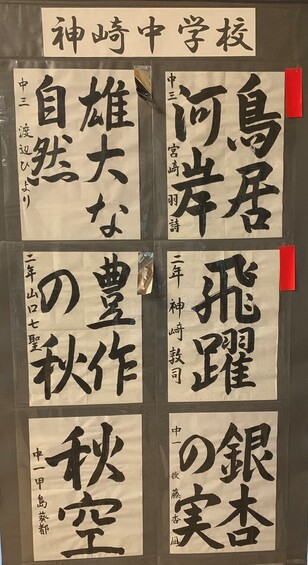 神崎中学校
鳥居
河岸
中三 宮崎羽詩
雄大な
自然
中三 渡辺ひより
飛躍
二年 神崎敦司
豊作
の秋
二年 山口七聖
銀杏
の実
中一
秋空
中一 甲島葵都